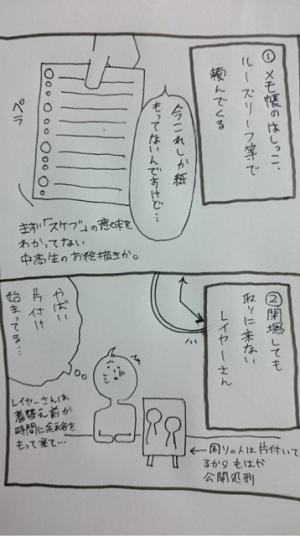 ① メモ帳のはしっこ、
ルーズリーフ等で
頼んでくる
今これしか紙
もってないんですけど…
ペラ
まず「スケブ」の意味を
わかってない
中高生のお絵描きか。
② 開場しても
取りに来ない
レイヤーさん
やばい
片付け
始まってる…
レイヤーさんは
着替え前か
時間に余裕を
もって来て…
←周りの人は片付いて
るからもはや
公開処刑